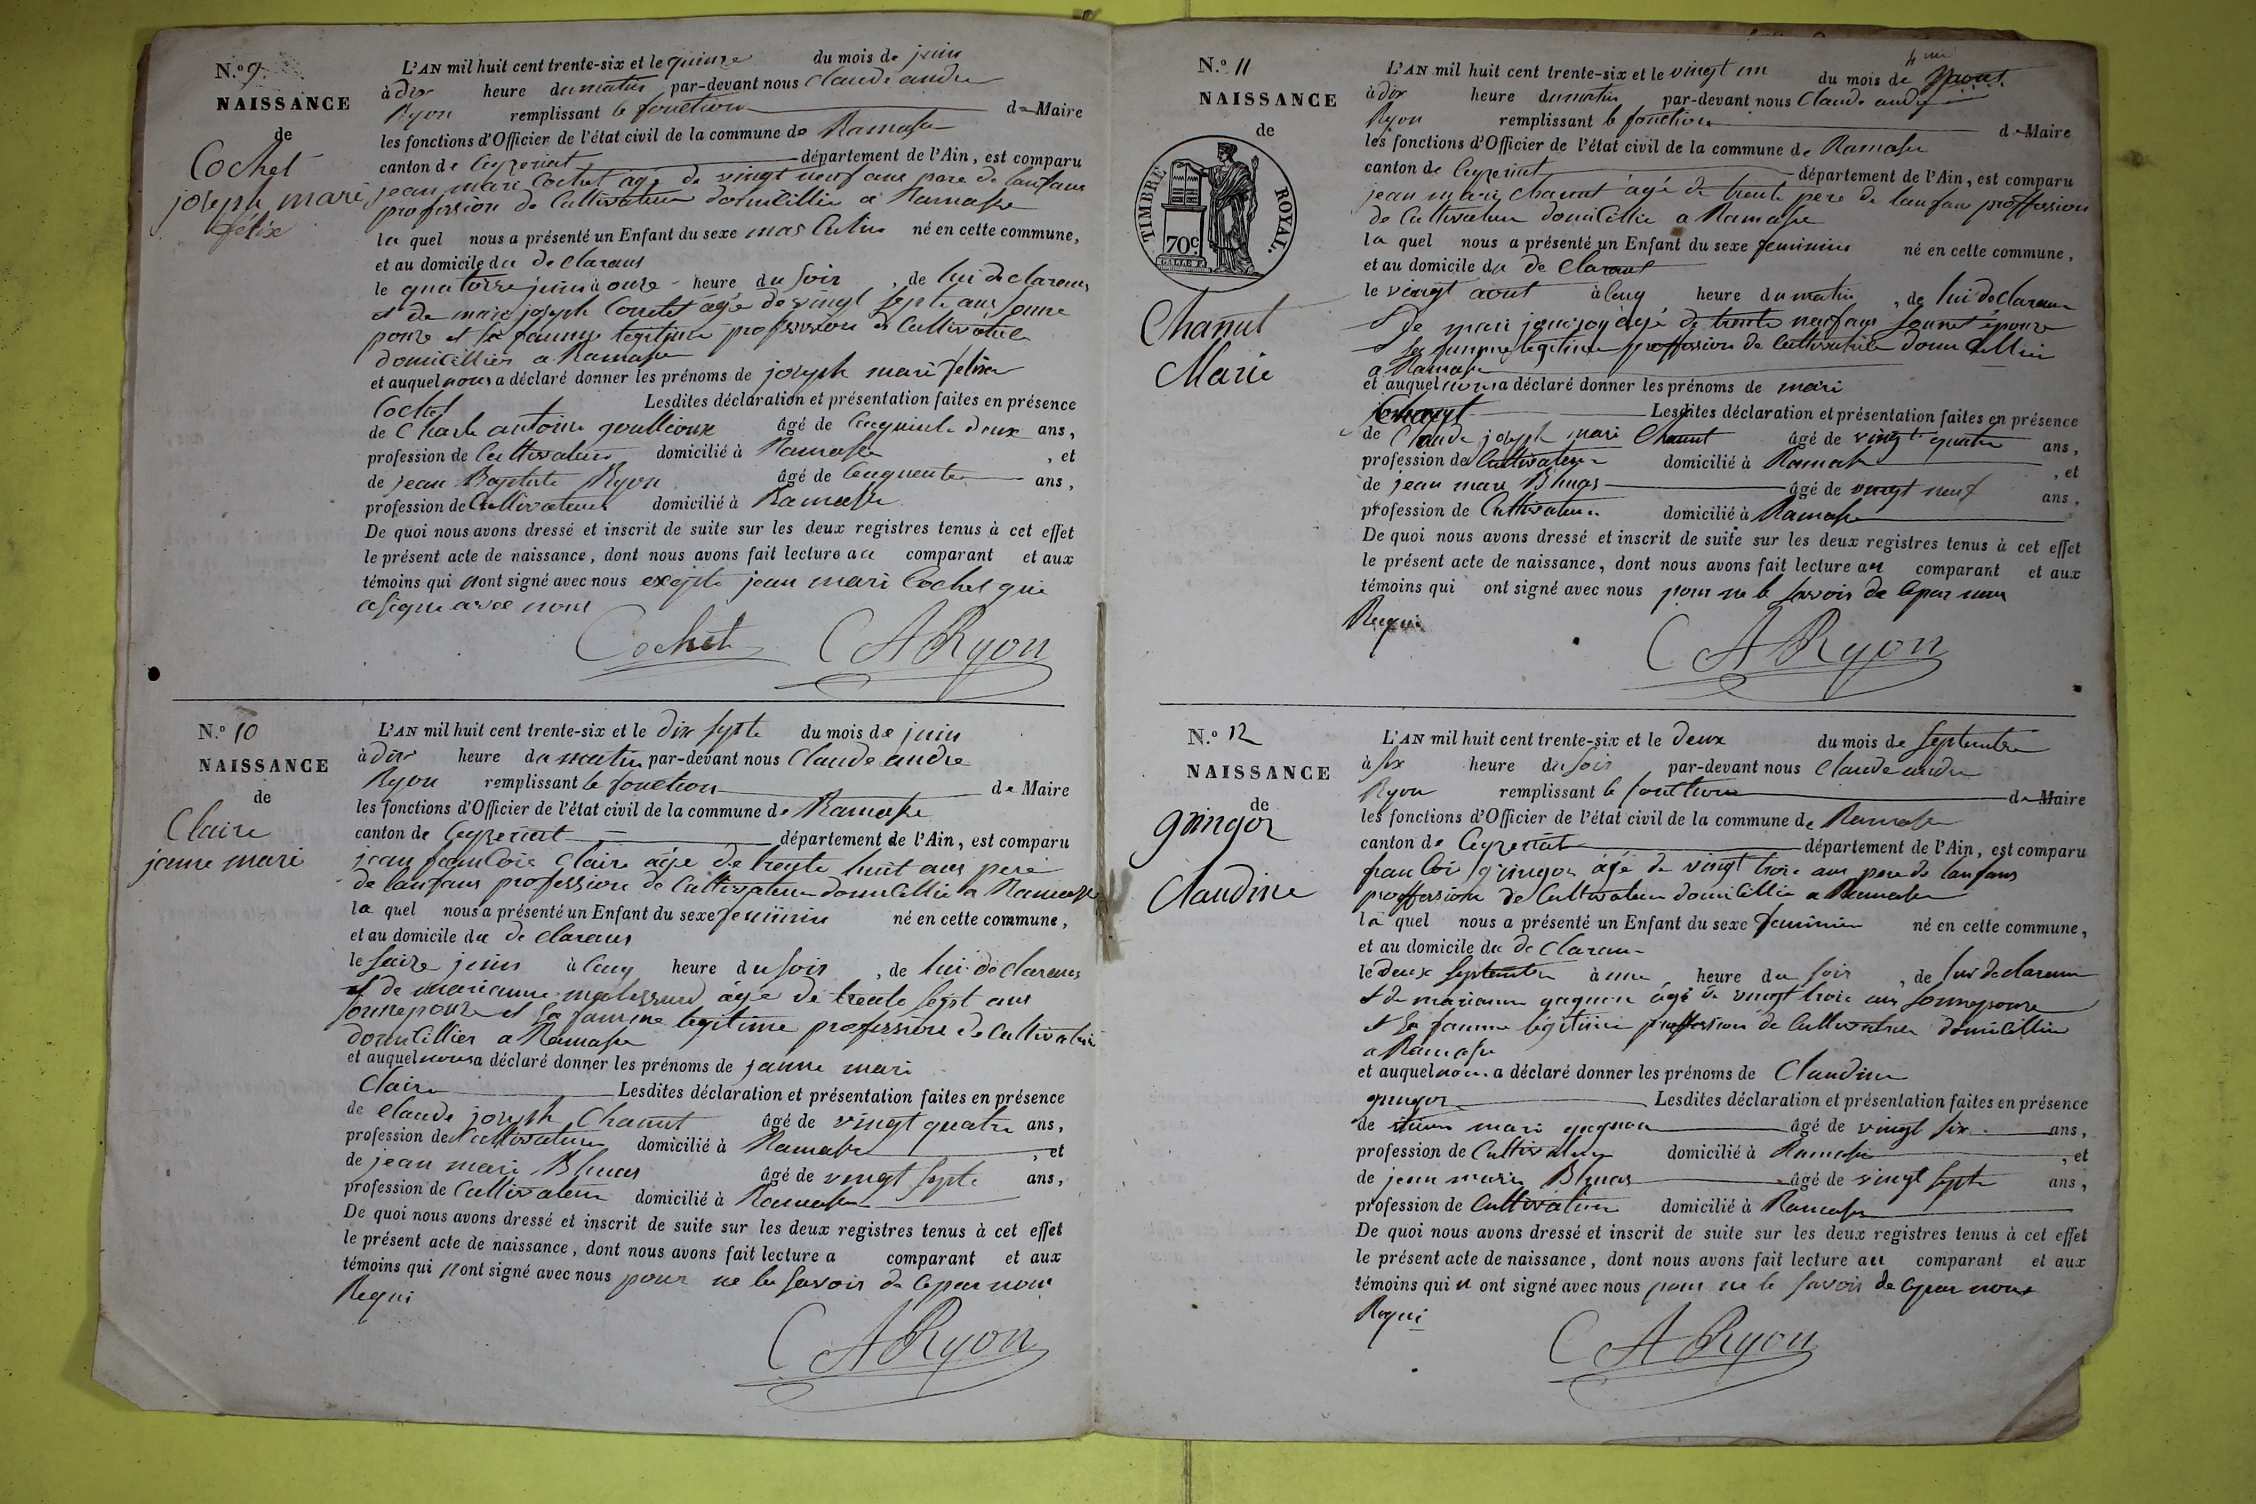 N.° 9.
NAISSANCE
de
Cochet
joseph mari
félix
L'AN mil huit cent trente-six et le quinze du mois de juin
à dix heure du matin par-devant nous Claude andre
Ryon remplissant le fonction de Maire
les fonctions d'Officier de l'état civil de la commune de Ramasse
canton de Ceyzeriat département de l'Ain, est comparu
jean mari Cochet agé de vingt neuf ans pere de lanfans
profission de Cultivateur domicillié a Ramasse
la quel nous a présenté un Enfant du sexe masculin né en cette commune,
et au domicile du de clarans
le quatorze juin à onze heure du soir, de lui declarans
et de mari joseph agé de vingt septe ans sonne
pouze et sa famme legitime profission de Cultivatrice
domicillier a Ramasse
et auquel nous a déclaré donner les prénoms de joseph mari félix
Cochet Lesdites déclaration et présentation faites en présence
de Charle antoine goullioux âgé de Cinquiente deux ans,
profession de Cultivateur domicilié à Ramasse, et
de jean Baptiste Ryon âgé de Cinquente ans,
profession de Cultivateur domicilié à Ramasse
De quoi nous avons dressé et inscrit de suite sur les deux registres tenus à cet effet
le présent acte de naissance, dont nous avons fait lecture au comparant et aux
témoins qui nont signé avec nous exepte jean mari Cochet qui
a signe avec nous
Cochet CARyon
N.° 10
NAISSANCE
de
Claire
janne mari
L'AN mil huit cent trente-six et le dix septe du mois de juin
à dix heure du matin par-devant nous Claude andre
Ryon remplissant le fonction de Maire
les fonctions d'Officier de l'état civil de la commune de Ramasse
canton de Ceyzeriat département de l'Ain, est comparu
jean francois Claire agé de trente huit ans pere
de lanfans profession de Cultivateur domicillié a Ramasse
la quel nous a présenté un Enfant du sexe feminin né en cette commune,
et au domicile du de clarans
le saize juin à cinq heure du soir, de lui de clarans
et de marianne agé de trente sept ans
sonne pouze et sa famme legitime profession de Cultivatrice
domicillier a Ramasse
et auquel nous a déclaré donner les prénoms de janne mari
Claire Lesdites déclaration et présentation faites en présence
de Claude joseph Chanut âgé de vingt quatre ans,
profession de Cultivateur domicilié à Ramasse, et
de jean mari Bluas âgé de vingt septe ans,
profession de Cultivateur domicilié à Ramasse
De quoi nous avons dressé et inscrit de suite sur les deux registres tenus à cet effet
le présent acte de naissance, dont nous avons fait lecture a comparant et aux
témoins qui nont signé avec nous pour ne le savoir de cepar nous
Requi
CARyon
N.° 11
NAISSANCE
de
TIMBRE ROYAL.
70c
Chanut
Marie
L'AN mil huit cent trente-six et le vingt un du mois de aout
à dix heure du matin par-devant nous Claude andre
Ryon remplissant le fonction de Maire
les fonctions d'Officier de l'état civil de la commune de Ramasse
canton de Ceyzeriat département de l'Ain, est comparu
jean mari Chanut agé de trente pere de lanfans proffession
de Cultivateur domicillié a Ramasse
la quel nous a présenté un Enfant du sexe feminin né en cette commune,
et au domicile du de clarant
le vingt aout à cinq heure du matin, de lui declarans
et de mari agé de trente neuf ans sonne épouze
et sa famme legitime proffession de Cultivatrice domicillie
a Ramasse
et auquel nous a déclaré donner les prénoms de mari
Chanut Lesdites déclaration et présentation faites en présence
de Claude joseph mari Chanut âgé de vingt quatre ans,
profession de Cultivateur domicilié à Ramasse, et
de jean mari Bluas âgé de vingt neuf ans,
profession de Cultivateur domicilié à Ramasse
De quoi nous avons dressé et inscrit de suite sur les deux registres tenus à cet effet
le présent acte de naissance, dont nous avons fait lecture au comparant et aux
témoins qui ont signé avec nous pour ne le savoir de cepar nous
Requi
CARyon
N.° 12
NAISSANCE
de
gringoz
Claudine
L'AN mil huit cent trente-six et le deux du mois de septembre
à six heure du soir par-devant nous Claude andre
Ryon remplissant le fonction de Maire
les fonctions d'Officier de l'état civil de la commune de Ramasse
canton de Ceyzeriat département de l'Ain, est comparu
francoi gringoz agé de vingt trois ans pere de lanfans
proffession de Cultivateur domicillié a Ramasse
la quel nous a présenté un Enfant du sexe feminin né en cette commune,
et au domicile du de clarans
le deux septembre à une heure du soir, de lui declarans
et de marianne gagneu agé de vingt trois ans sonne pouze
et sa famme legitime proffession de Cultivatrice domicillie
a Ramasse
et auquel nous a déclaré donner les prénoms de Claudine
gringoz Lesdites déclaration et présentation faites en présence
de mari gagneu âgé de vingt six ans,
profession de Cultivateur domicilié à Ramasse, et
de jean mari Bluas âgé de vingt septe ans,
profession de Cultivateur domicilié à Ramasse
De quoi nous avons dressé et inscrit de suite sur les deux registres tenus à cet effet
le présent acte de naissance, dont nous avons fait lecture au comparant et aux
témoins qui n ont signé avec nous pour ne le savoir de cepar nous
Requi
CARyon